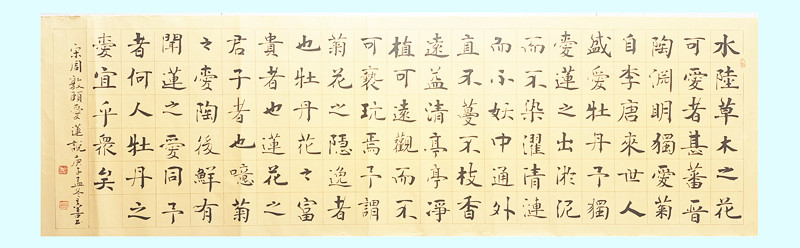 水陸草木之花
可愛者甚蕃晉
陶淵明獨愛菊
自李唐來世人
盛愛牡丹予獨
愛蓮之出淤泥
而不染濯清漣
而不妖中通外
直不蔓不枝香
遠益清亭亭淨
植可遠觀而不
可褻玩焉予謂
菊花之隱逸者
也牡丹花々富
貴者也蓮花之
君子者也噫菊
々愛陶後鮮有
聞蓮之愛同予
者何人牡丹之
愛宜乎衆矣
宋周敦頤愛蓮說庚子孟冬